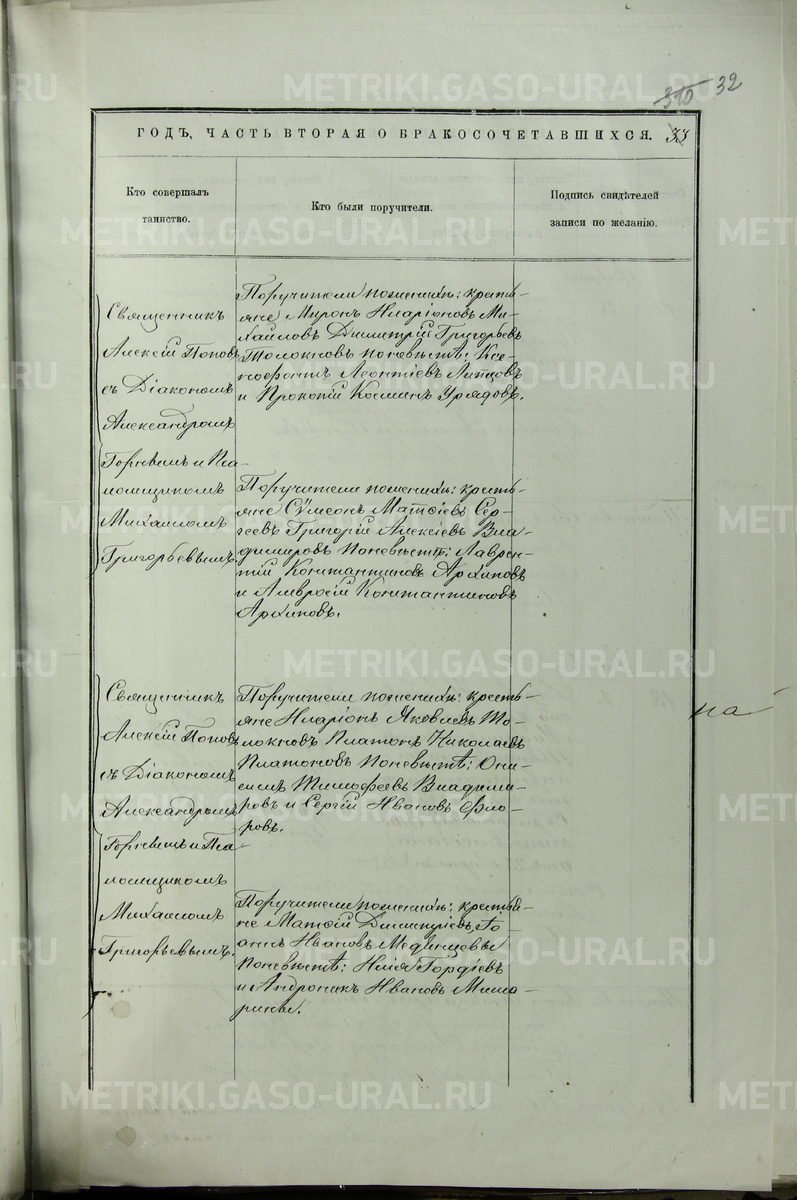 310 32
ГОДЪ, ЧАСТЬ ВТОРАЯ О БРАКОСОЧЕТАВШИХСЯ. 33
Кто совершалъ
таинство.
Кто были поручители.
Подпись свидѣтелей
записи по желанію.
Священникъ
Алексій Поповъ
съ Діакономъ
Александромъ
и Пса-
ломщикомъ
Михаиломъ
Григорьевымъ.
Поручители по женихѣ: кресть-
яне Миронъ Иларіоновъ Ми-
хаиловъ Димитрій Григорьевъ
Толокновъ по невѣстѣ: Ксе-
нофонтъ Леонтіевъ
и Прокопій Косминъ Урядовъ.
Поручители по женихѣ: кресть-
яне Сѵмеонъ Матѳіевъ Сер-
геевъ Григорій Алексіевъ Вла-
димировъ по невѣстѣ: Лаврен-
тій Константиновъ Архиповъ
и Амвросій Константиновъ
Архиповъ.
Священникъ
Алексій Поповъ
съ Діакономъ
Александромъ
и Пса-
ломщикомъ
Михаиломъ
Григорьевымъ.
Поручители по женихѣ: кресть-
яне Иларіонъ Яковлевъ То-
локновъ Платонъ Николаевъ
Платоновъ по невѣстѣ: Они-
симъ Тимофеевъ Владими-
ровъ и Сергій Ивановъ Фло-
ровъ.
Поручители по женихѣ: крестья-
не Матѳій Димитріевъ, Іо-
аннъ Ивановъ Мединцевы
по невѣстѣ: Илія Гордіевъ
и Андроникъ Ивановъ Мишо-
рины.
на
METRIKI.GASO-URAL.RU